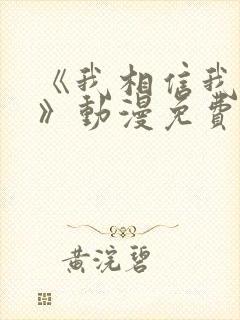 《我相信我
》動漫免費
黃浣碧